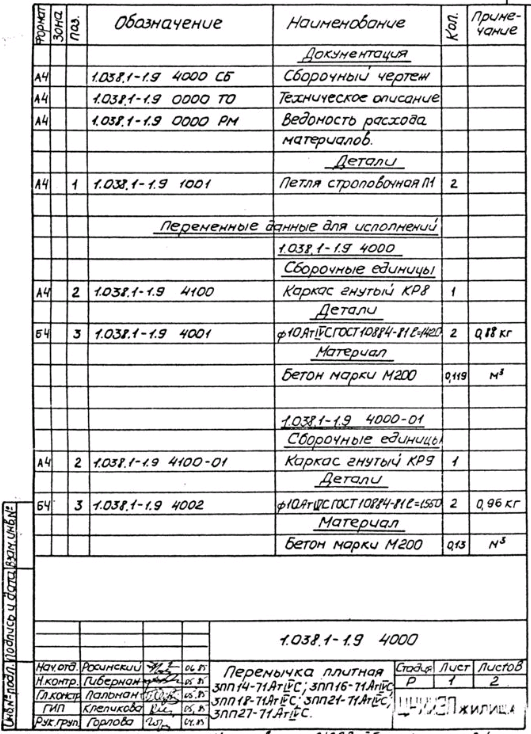 Формат Зона Поз. Обозначение Наименование Кол. Приме-
чание
Документация
А4 1.038.1-1.9 4000 СБ Сборочный чертеж
А4 1.038.1-1.9 0000 ТО Техническое описание
А4 1.038.1-1.9 0000 РМ Ведомость расхода
материалов.
Детали
А4 1 1.038.1-1.9 1001 Петля строповочная П1 2
Переменные данные для исполнений
1.038.1-1.9 4000
Сборочные единицы
А4 2 1.038.1-1.9 4100 Каркас гнутый КР8 1
Детали
Б4 3 1.038.1-1.9 4001 ф10АтIVС ГОСТ10884-81 ℓ=1420 2 0,88 кг
Материал
Бетон марки М200 0,119 м³
1.038.1-1.9 4000-01
Сборочные единицы
А4 2 1.038.1-1.9 4100-01 Каркас гнутый КР9 1
Детали
Б4 3 1.038.1-1.9 4002 ф10АтIVС ГОСТ10884-81 ℓ=1560 2 0,96 кг
Материал
Бетон марки М200 0,13 м³
Инв.№подл. Подпись и дата Взам.инв.№
1.038.1-1.9 4000
Нач.отд. Росинский
Н.контр. Гиберман
Гл.констр Пальман
ГИП Клепикова
Рук.груп. Горлова
Перемычка плитная
3ПП14-71АтIVС; 3ПП16-71АтIVС;
3ПП18-71АтIVС; 3ПП21-71АтIVС;
3ПП27-71АтIVС.
Стадия Лист Листов
Р 1 2
ЦНИИЭП жилища